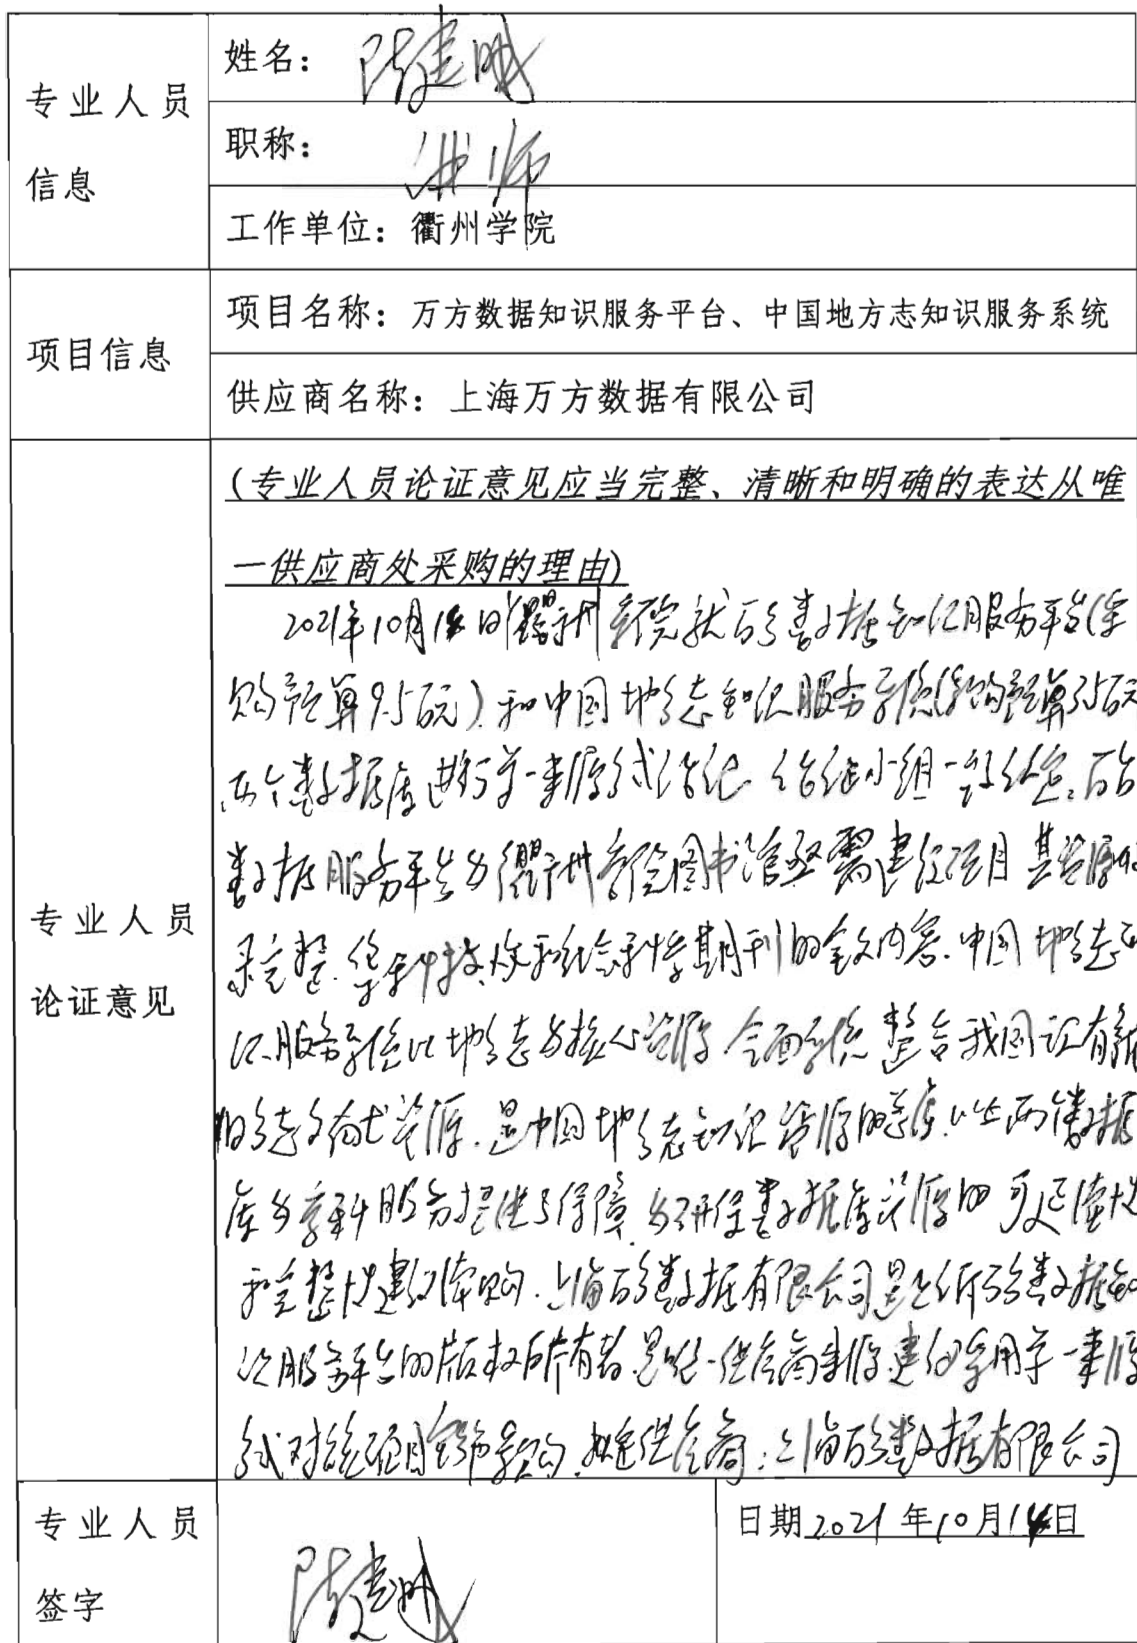 专业人员
信息
姓名：陈建
职称：讲师
工作单位：衢州学院
项目信息
项目名称：万方数据知识服务平台、中国地方志知识服务系统
供应商名称：上海万方数据有限公司
专业人员
论证意见
(专业人员论证意见应当完整、清晰和明确的表达从唯
一供应商处采购的理由)
2021年10月14日衢州学院就万方数据知识服务平台(采
购预算9.5万元)和中国地方志知识服务系统(采购预算3.5万元
两个数据库进行单一来源方式论证.论证小组一致认定,万方
数据服务平台为衢州学院图书馆亟需建设项目其资源收
录完整.科技和社会科学期刊的全文内容.中国地方志知
识服务系统以地方志为核心资源.全面系统整合我国
的方志文献资源.是中国地方志知识资源的总库.以上两个数据
库为学科服务提供了保障.为确保数据库资源的可延续性
和完整性建议续购.上海万方数据有限公司是万方数据知
识服务平台的版权所有者是唯一供应商来源建议采用单一来源
方式对该项目实施采购.拟定供应商:上海万方数据有限公司
专业人员
签字
陈建
日期2021年10月14日